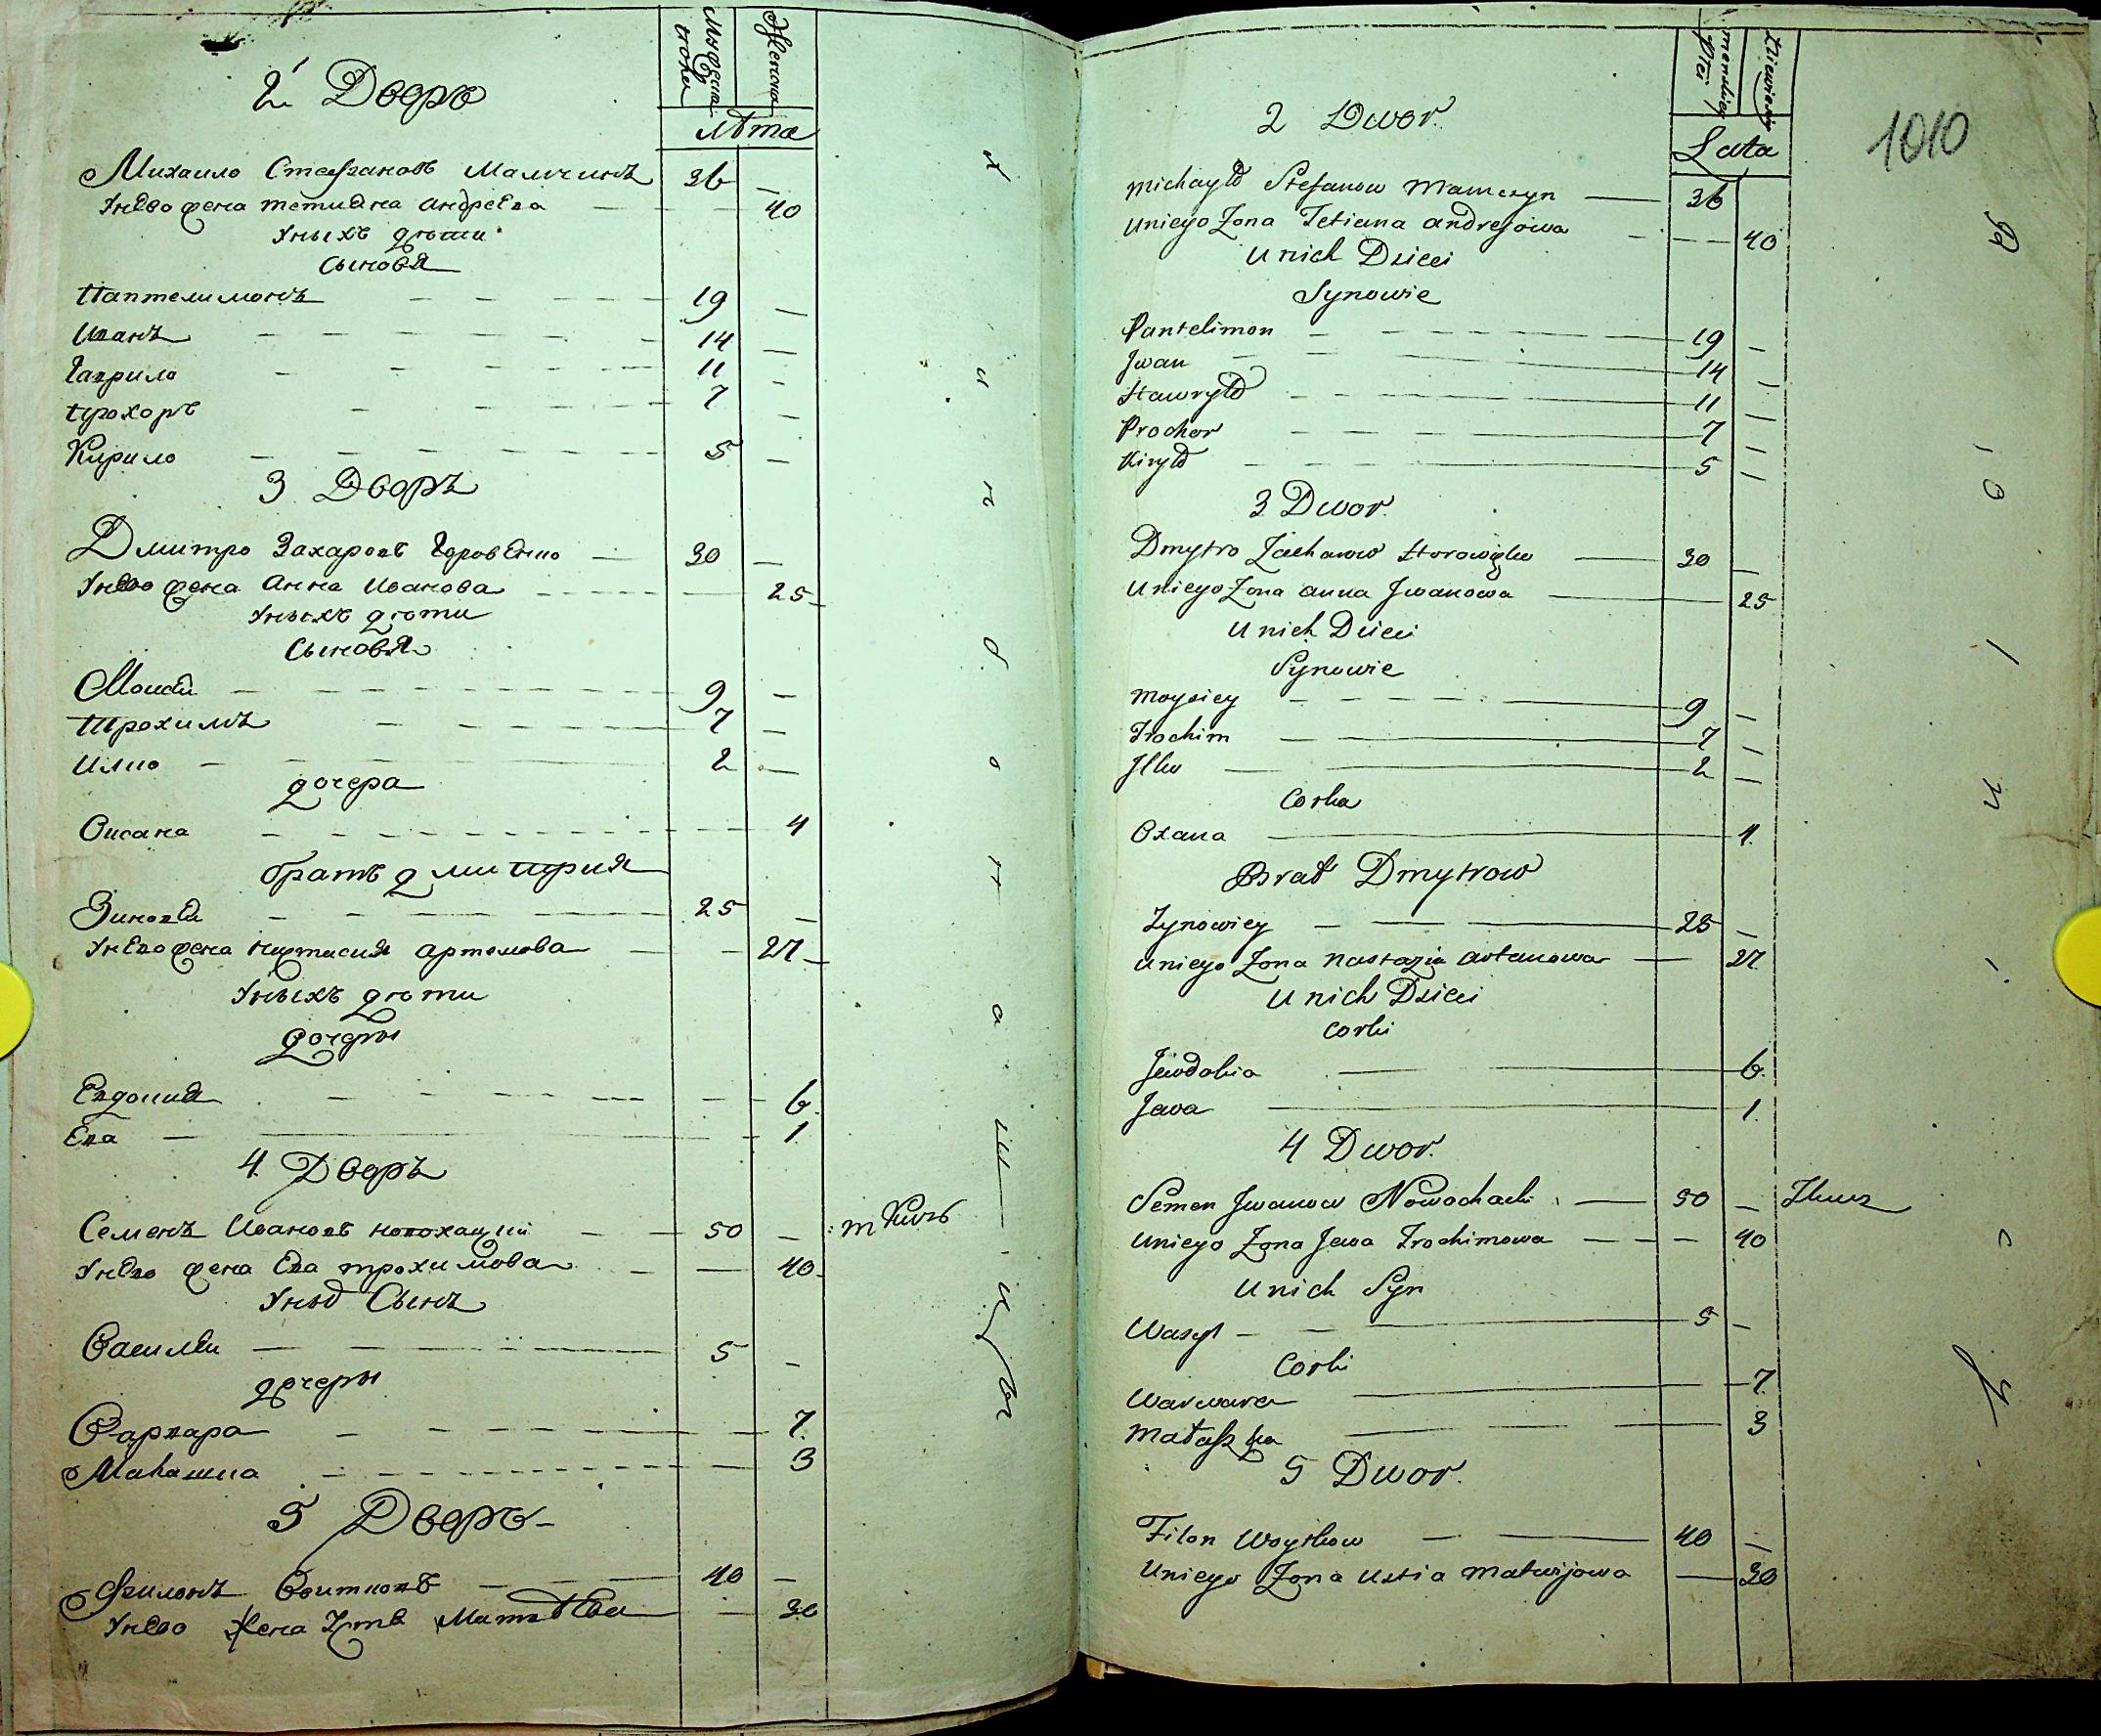 Мужеска
пола
Женска
2 Дворъ
Лѣта
Михаило Стефановъ Мамчинъ 36 —
Унево жена Тетиана Андреева — 40
Уныхъ дѣти
Сыновя
Пантелимонъ 19 —
Иванъ 14 —
Гаврило 11 —
Прохоръ 7 —
Кирило 5 —
3 Дворъ
Дмитро Захаровъ 30 —
Унево жена Анна Иванова — 25
Уныхъ дѣти
Сыновя
Моисей 9 —
Трохимъ 7 —
Илко 2 —
дочера
Оксана 4
братъ дмитрия
Зиновей 25 —
Унево жена Настасия Артемова — 27
Уныхъ дѣти
дочеры
Евдокия 6
Ева 1
4 Дворъ
Семенъ Ивановъ Новохацкий 50 — Ткачъ
Унево жена Ева Трохимова — 40
Сынъ
Василей 5 —
дочеры
Варвара 7
Малашка 3
5 Дворъ
Филонъ Войтковъ 40 —
Унево Жена Матвѣева — 30
męskiey
Płci
2 Dwor
Lata
1010
Michayło Stefanow Mamczyn 36
Uniego Zona Tetiana Andrejowa — 40
U nich Dzieci
Synowie
Pantelimon 19 —
Jwan 14 —
Hawryło 11 —
Prochor 7 —
Kiryło 5 —
3 Dwor
Dmytro Zacharow 30 —
Uniego Zona Anna Jwanowa 25
U nich Dzieci
Synowie
Moysiey 9 —
Trochim 7 —
Jlko 2 —
Corka
Oxana 4
Brat Dmytrow
Zynowiey 25 —
Uniego Zona Nastazia Artemowa — 27
U nich Dzieci
Corki
Jewdokia 6
Jewa 1
4 Dwor
Semen Jwanow Nowochacki 50 — Tkacz
Uniego Zona Jewa Trochimowa — 40
U nich Syn
Wasyl 5 —
Corki
Warwara 7
Małaszka 3
5 Dwor
Filon Woytkow 40 —
Uniego Zona Ustia Matwijowa — 30